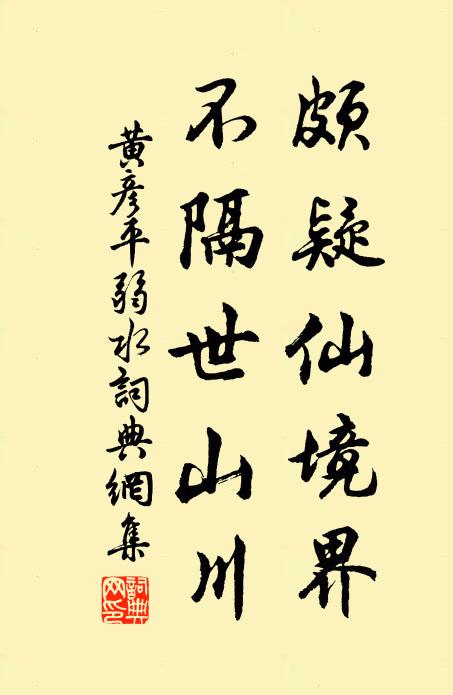 頗疑仙境界
不隔世山川
黄彦平弱水詞典網集
詞典網印